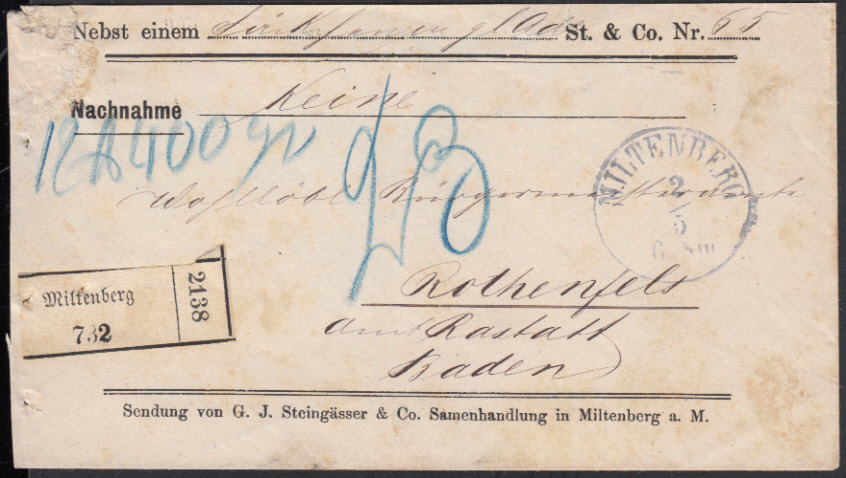 Nebst einem St. & Co. Nr. 65
Nachnahme Keine
12 400 gr
MILTENBERG
2
5
Wohllöbl. Bürgermeisteramte
Miltenberg
732
2138
Rothenfels
Amt Rastatt
Baden
Sendung von G. J. Steingässer & Co. Samenhandlung in Miltenberg a. M.